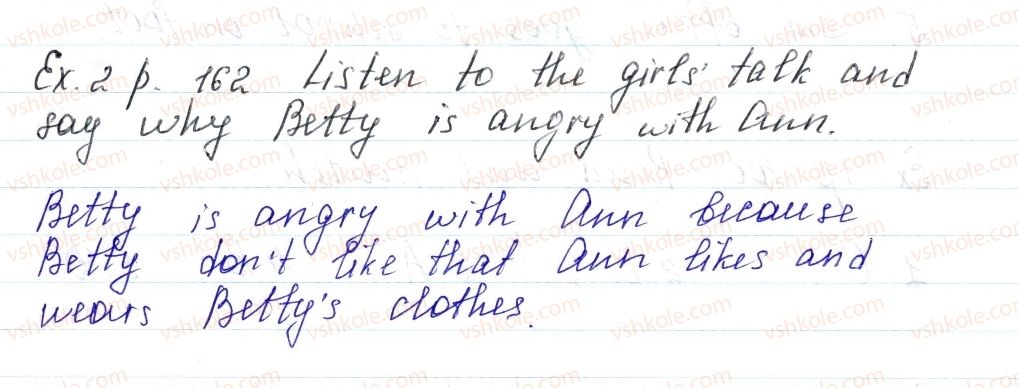 Ex. 2 p. 162 Listen to the girls' talk and
say why Betty is angry with Ann.
Betty is angry with Ann because
Betty don't like that Ann likes and
wears Betty's clothes.